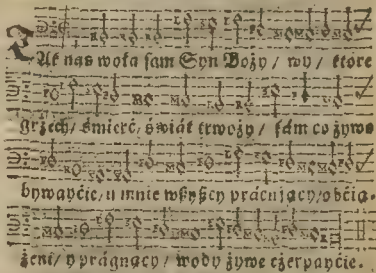 Ták nas woła sam Syn Boży / wy / ktore
grzéch / śmierć, świát trwoży / sám co żywo
bywayćie, u mnie wszyscy prácujący, obćią-
żeni / y prágnący / wody żywe czerpayćie.